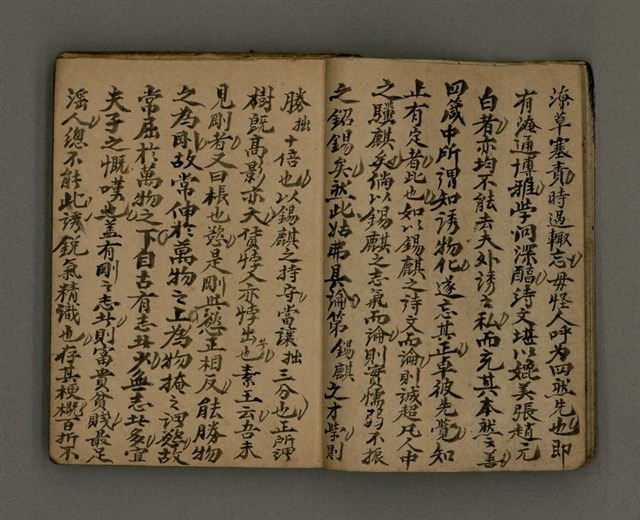 潦草塞責時過輙忘毋怪人呼為四然先也即
有海通博雅学问深醞詩文堪以媲美張趙元
白者亦均不能去夫外誘之私而充其本然之善
四箴中所謂知誘物化遂忘其正卓彼先覺知
止有定者此也如以錫麒之詩文而論則誠超凡人中
之騏麒矣倘以錫麒之志氣而論則實懦弱不振
之錫矣然此姑弗具論第錫麒之才学則
勝拙十倍也以錫麒之持守當讓拙三分也正所謂
樹既高影亦大貨悖入亦悖出也素王云吾未
見剛者又曰棖也慾是剛與慾正相反能勝物
之為剛故常伸於萬物之上為物掩之謂慾故
常屈於萬物之下自古有志者少無志者多宜
夫子之慨嘆也蓋有剛之志者則富貴貧賤最足
滛人總不能此誘銳氣精識也存其梗概百折不